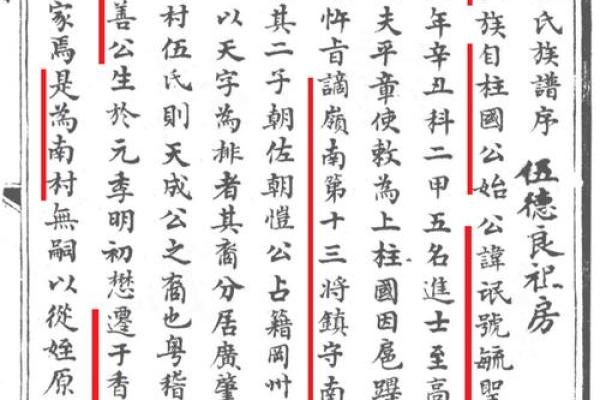 氏族譜序 伍德良祀房
族自柱國公始公諱珉號毓聖
年辛丑科二甲五名進士至高
夫平章使敕為上柱國因扈蹕
忤旨謫嶺南第十三將鎮守南
其二子朝佐朝愷公占籍岡州
以天字為排者其裔分居廣肇
村伍氏則天成公之裔也粤稽
善公生於元季明初懋遷于香
家焉是為南村無嗣以從姪原